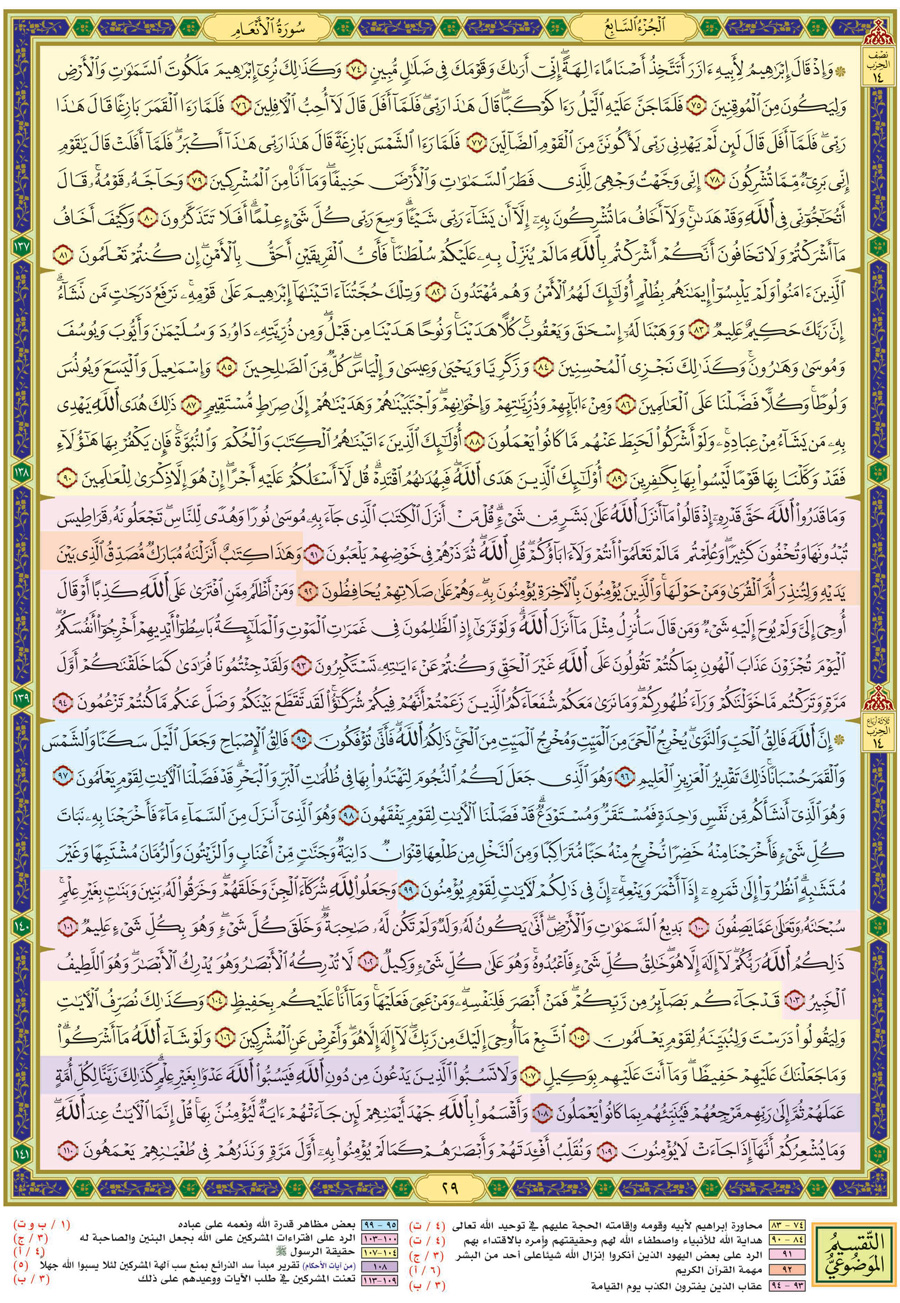 سُورَةُ الأَنْعَامِ
الجُزْءُ السَّابِعُ
نصف الحزب ١٤
وَإِذْ قَالَ إِبْرَٰهِيمُ لِأَبِيهِ ءَازَرَ أَتَتَّخِذُ أَصْنَامًا ءَالِهَةً إِنِّىٓ أَرَىٰكَ وَقَوْمَكَ فِى ضَلَٰلٍ مُّبِينٍ ٧٤ وَكَذَٰلِكَ نُرِىٓ إِبْرَٰهِيمَ مَلَكُوتَ السَّمَٰوَٰتِ وَالْأَرْضِ
وَلِيَكُونَ مِنَ الْمُوقِنِينَ ٧٥ فَلَمَّا جَنَّ عَلَيْهِ الَّيْلُ رَءَا كَوْكَبًا قَالَ هَٰذَا رَبِّى فَلَمَّآ أَفَلَ قَالَ لَآ أُحِبُّ الْءَافِلِينَ ٧٦ فَلَمَّا رَءَا الْقَمَرَ بَازِغًا قَالَ هَٰذَا
رَبِّى فَلَمَّآ أَفَلَ قَالَ لَئِن لَّمْ يَهْدِنِى رَبِّى لَأَكُونَنَّ مِنَ الْقَوْمِ الضَّآلِّينَ ٧٧ فَلَمَّا رَءَا الشَّمْسَ بَازِغَةً قَالَ هَٰذَا رَبِّى هَٰذَآ أَكْبَرُ فَلَمَّآ أَفَلَتْ قَالَ يَٰقَوْمِ
إِنِّى بَرِىٓءٌ مِّمَّا تُشْرِكُونَ ٧٨ إِنِّى وَجَّهْتُ وَجْهِىَ لِلَّذِى فَطَرَ السَّمَٰوَٰتِ وَالْأَرْضَ حَنِيفًا وَمَآ أَنَا۠ مِنَ الْمُشْرِكِينَ ٧٩ وَحَآجَّهُۥ قَوْمُهُۥ قَالَ
أَتُحَٰٓجُّوٓنِّى فِى اللَّهِ وَقَدْ هَدَىٰنِ وَلَآ أَخَافُ مَا تُشْرِكُونَ بِهِۦٓ إِلَّآ أَن يَشَآءَ رَبِّى شَيْـًٔا وَسِعَ رَبِّى كُلَّ شَىْءٍ عِلْمًا أَفَلَا تَتَذَكَّرُونَ ٨٠ وَكَيْفَ أَخَافُ
مَآ أَشْرَكْتُمْ وَلَا تَخَافُونَ أَنَّكُمْ أَشْرَكْتُم بِاللَّهِ مَا لَمْ يُنَزِّلْ بِهِۦ عَلَيْكُمْ سُلْطَٰنًا فَأَىُّ الْفَرِيقَيْنِ أَحَقُّ بِالْأَمْنِ إِن كُنتُمْ تَعْلَمُونَ ٨١
١٣٧
الَّذِينَ ءَامَنُوا۟ وَلَمْ يَلْبِسُوٓا۟ إِيمَٰنَهُم بِظُلْمٍ أُو۟لَٰٓئِكَ لَهُمُ الْأَمْنُ وَهُم مُّهْتَدُونَ ٨٢ وَتِلْكَ حُجَّتُنَآ ءَاتَيْنَٰهَآ إِبْرَٰهِيمَ عَلَىٰ قَوْمِهِۦ نَرْفَعُ دَرَجَٰتٍ مَّن نَّشَآءُ
إِنَّ رَبَّكَ حَكِيمٌ عَلِيمٌ ٨٣ وَوَهَبْنَا لَهُۥٓ إِسْحَٰقَ وَيَعْقُوبَ كُلًّا هَدَيْنَا وَنُوحًا هَدَيْنَا مِن قَبْلُ وَمِن ذُرِّيَّتِهِۦ دَاوُۥدَ وَسُلَيْمَٰنَ وَأَيُّوبَ وَيُوسُفَ
وَمُوسَىٰ وَهَٰرُونَ وَكَذَٰلِكَ نَجْزِى الْمُحْسِنِينَ ٨٤ وَزَكَرِيَّا وَيَحْيَىٰ وَعِيسَىٰ وَإِلْيَاسَ كُلٌّ مِّنَ الصَّٰلِحِينَ ٨٥ وَإِسْمَٰعِيلَ وَالْيَسَعَ وَيُونُسَ
وَلُوطًا وَكُلًّا فَضَّلْنَا عَلَى الْعَٰلَمِينَ ٨٦ وَمِنْ ءَابَآئِهِمْ وَذُرِّيَّٰتِهِمْ وَإِخْوَٰنِهِمْ وَاجْتَبَيْنَٰهُمْ وَهَدَيْنَٰهُمْ إِلَىٰ صِرَٰطٍ مُّسْتَقِيمٍ ٨٧ ذَٰلِكَ هُدَى اللَّهِ يَهْدِى
بِهِۦ مَن يَشَآءُ مِنْ عِبَادِهِۦ وَلَوْ أَشْرَكُوا۟ لَحَبِطَ عَنْهُم مَّا كَانُوا۟ يَعْمَلُونَ ٨٨ أُو۟لَٰٓئِكَ الَّذِينَ ءَاتَيْنَٰهُمُ الْكِتَٰبَ وَالْحُكْمَ وَالنُّبُوَّةَ فَإِن يَكْفُرْ بِهَا هَٰٓؤُلَآءِ
فَقَدْ وَكَّلْنَا بِهَا قَوْمًا لَّيْسُوا۟ بِهَا بِكَٰفِرِينَ ٨٩ أُو۟لَٰٓئِكَ الَّذِينَ هَدَى اللَّهُ فَبِهُدَىٰهُمُ اقْتَدِهْ قُل لَّآ أَسْـَٔلُكُمْ عَلَيْهِ أَجْرًا إِنْ هُوَ إِلَّا ذِكْرَىٰ لِلْعَٰلَمِينَ ٩٠
١٣٨
وَمَا قَدَرُوا۟ اللَّهَ حَقَّ قَدْرِهِۦٓ إِذْ قَالُوا۟ مَآ أَنزَلَ اللَّهُ عَلَىٰ بَشَرٍ مِّن شَىْءٍ قُلْ مَنْ أَنزَلَ الْكِتَٰبَ الَّذِى جَآءَ بِهِۦ مُوسَىٰ نُورًا وَهُدًى لِّلنَّاسِ تَجْعَلُونَهُۥ قَرَاطِيسَ
تُبْدُونَهَا وَتُخْفُونَ كَثِيرًا وَعُلِّمْتُم مَّا لَمْ تَعْلَمُوٓا۟ أَنتُمْ وَلَآ ءَابَآؤُكُمْ قُلِ اللَّهُ ثُمَّ ذَرْهُمْ فِى خَوْضِهِمْ يَلْعَبُونَ ٩١ وَهَٰذَا كِتَٰبٌ أَنزَلْنَٰهُ مُبَارَكٌ مُّصَدِّقُ الَّذِى بَيْنَ
يَدَيْهِ وَلِتُنذِرَ أُمَّ الْقُرَىٰ وَمَنْ حَوْلَهَا وَالَّذِينَ يُؤْمِنُونَ بِالْءَاخِرَةِ يُؤْمِنُونَ بِهِۦ وَهُمْ عَلَىٰ صَلَاتِهِمْ يُحَافِظُونَ ٩٢ وَمَنْ أَظْلَمُ مِمَّنِ افْتَرَىٰ عَلَى اللَّهِ كَذِبًا أَوْ قَالَ
أُوحِىَ إِلَىَّ وَلَمْ يُوحَ إِلَيْهِ شَىْءٌ وَمَن قَالَ سَأُنزِلُ مِثْلَ مَآ أَنزَلَ اللَّهُ وَلَوْ تَرَىٰٓ إِذِ الظَّٰلِمُونَ فِى غَمَرَٰتِ الْمَوْتِ وَالْمَلَٰٓئِكَةُ بَاسِطُوٓا۟ أَيْدِيهِمْ أَخْرِجُوٓا۟ أَنفُسَكُمُ
الْيَوْمَ تُجْزَوْنَ عَذَابَ الْهُونِ بِمَا كُنتُمْ تَقُولُونَ عَلَى اللَّهِ غَيْرَ الْحَقِّ وَكُنتُمْ عَنْ ءَايَٰتِهِۦ تَسْتَكْبِرُونَ ٩٣ وَلَقَدْ جِئْتُمُونَا فُرَٰدَىٰ كَمَا خَلَقْنَٰكُمْ أَوَّلَ
مَرَّةٍ وَتَرَكْتُم مَّا خَوَّلْنَٰكُمْ وَرَآءَ ظُهُورِكُمْ وَمَا نَرَىٰ مَعَكُمْ شُفَعَآءَكُمُ الَّذِينَ زَعَمْتُمْ أَنَّهُمْ فِيكُمْ شُرَكَٰٓؤُا۟ لَقَد تَّقَطَّعَ بَيْنَكُمْ وَضَلَّ عَنكُم مَّا كُنتُمْ تَزْعُمُونَ ٩٤
١٣٩
ثلاثة أرباع الحزب ١٤
إِنَّ اللَّهَ فَالِقُ الْحَبِّ وَالنَّوَىٰ يُخْرِجُ الْحَىَّ مِنَ الْمَيِّتِ وَمُخْرِجُ الْمَيِّتِ مِنَ الْحَىِّ ذَٰلِكُمُ اللَّهُ فَأَنَّىٰ تُؤْفَكُونَ ٩٥ فَالِقُ الْإِصْبَاحِ وَجَعَلَ الَّيْلَ سَكَنًا وَالشَّمْسَ
وَالْقَمَرَ حُسْبَانًا ذَٰلِكَ تَقْدِيرُ الْعَزِيزِ الْعَلِيمِ ٩٦ وَهُوَ الَّذِى جَعَلَ لَكُمُ النُّجُومَ لِتَهْتَدُوا۟ بِهَا فِى ظُلُمَٰتِ الْبَرِّ وَالْبَحْرِ قَدْ فَصَّلْنَا الْءَايَٰتِ لِقَوْمٍ يَعْلَمُونَ ٩٧
وَهُوَ الَّذِىٓ أَنشَأَكُم مِّن نَّفْسٍ وَٰحِدَةٍ فَمُسْتَقَرٌّ وَمُسْتَوْدَعٌ قَدْ فَصَّلْنَا الْءَايَٰتِ لِقَوْمٍ يَفْقَهُونَ ٩٨ وَهُوَ الَّذِىٓ أَنزَلَ مِنَ السَّمَآءِ مَآءً فَأَخْرَجْنَا بِهِۦ نَبَاتَ
كُلِّ شَىْءٍ فَأَخْرَجْنَا مِنْهُ خَضِرًا نُّخْرِجُ مِنْهُ حَبًّا مُّتَرَاكِبًا وَمِنَ النَّخْلِ مِن طَلْعِهَا قِنْوَانٌ دَانِيَةٌ وَجَنَّٰتٍ مِّنْ أَعْنَابٍ وَالزَّيْتُونَ وَالرُّمَّانَ مُشْتَبِهًا وَغَيْرَ
مُتَشَٰبِهٍ انظُرُوٓا۟ إِلَىٰ ثَمَرِهِۦٓ إِذَآ أَثْمَرَ وَيَنْعِهِۦٓ إِنَّ فِى ذَٰلِكُمْ لَءَايَٰتٍ لِّقَوْمٍ يُؤْمِنُونَ ٩٩ وَجَعَلُوا۟ لِلَّهِ شُرَكَآءَ الْجِنَّ وَخَلَقَهُمْ وَخَرَقُوا۟ لَهُۥ بَنِينَ وَبَنَٰتٍ بِغَيْرِ عِلْمٍ
سُبْحَٰنَهُۥ وَتَعَٰلَىٰ عَمَّا يَصِفُونَ ١٠٠ بَدِيعُ السَّمَٰوَٰتِ وَالْأَرْضِ أَنَّىٰ يَكُونُ لَهُۥ وَلَدٌ وَلَمْ تَكُن لَّهُۥ صَٰحِبَةٌ وَخَلَقَ كُلَّ شَىْءٍ وَهُوَ بِكُلِّ شَىْءٍ عَلِيمٌ ١٠١
١٤٠
ذَٰلِكُمُ اللَّهُ رَبُّكُمْ لَآ إِلَٰهَ إِلَّا هُوَ خَٰلِقُ كُلِّ شَىْءٍ فَاعْبُدُوهُ وَهُوَ عَلَىٰ كُلِّ شَىْءٍ وَكِيلٌ ١٠٢ لَّا تُدْرِكُهُ الْأَبْصَٰرُ وَهُوَ يُدْرِكُ الْأَبْصَٰرَ وَهُوَ اللَّطِيفُ
الْخَبِيرُ ١٠٣ قَدْ جَآءَكُم بَصَآئِرُ مِن رَّبِّكُمْ فَمَنْ أَبْصَرَ فَلِنَفْسِهِۦ وَمَنْ عَمِىَ فَعَلَيْهَا وَمَآ أَنَا۠ عَلَيْكُم بِحَفِيظٍ ١٠٤ وَكَذَٰلِكَ نُصَرِّفُ الْءَايَٰتِ
وَلِيَقُولُوا۟ دَرَسْتَ وَلِنُبَيِّنَهُۥ لِقَوْمٍ يَعْلَمُونَ ١٠٥ اتَّبِعْ مَآ أُوحِىَ إِلَيْكَ مِن رَّبِّكَ لَآ إِلَٰهَ إِلَّا هُوَ وَأَعْرِضْ عَنِ الْمُشْرِكِينَ ١٠٦ وَلَوْ شَآءَ اللَّهُ مَآ أَشْرَكُوا۟
وَمَا جَعَلْنَٰكَ عَلَيْهِمْ حَفِيظًا وَمَآ أَنتَ عَلَيْهِم بِوَكِيلٍ ١٠٧ وَلَا تَسُبُّوا۟ الَّذِينَ يَدْعُونَ مِن دُونِ اللَّهِ فَيَسُبُّوا۟ اللَّهَ عَدْوًۢا بِغَيْرِ عِلْمٍ كَذَٰلِكَ زَيَّنَّا لِكُلِّ أُمَّةٍ
عَمَلَهُمْ ثُمَّ إِلَىٰ رَبِّهِم مَّرْجِعُهُمْ فَيُنَبِّئُهُم بِمَا كَانُوا۟ يَعْمَلُونَ ١٠٨ وَأَقْسَمُوا۟ بِاللَّهِ جَهْدَ أَيْمَٰنِهِمْ لَئِن جَآءَتْهُمْ ءَايَةٌ لَّيُؤْمِنُنَّ بِهَا قُلْ إِنَّمَا الْءَايَٰتُ عِندَ اللَّهِ
وَمَا يُشْعِرُكُمْ أَنَّهَآ إِذَا جَآءَتْ لَا يُؤْمِنُونَ ١٠٩ وَنُقَلِّبُ أَفْـِٔدَتَهُمْ وَأَبْصَٰرَهُمْ كَمَا لَمْ يُؤْمِنُوا۟ بِهِۦٓ أَوَّلَ مَرَّةٍ وَنَذَرُهُمْ فِى طُغْيَٰنِهِمْ يَعْمَهُونَ ١١٠
١٤١
٢٩
التَّقْسِيمُ المَوْضُوعِيُّ
٧٤ - ٨٣ محاورة إبراهيم لأبيه وقومه وإقامته الحجة عليهم في توحيد الله تعالى (٤ / ت)
٨٤ - ٩٠ هداية الله للأنبياء واصطفاء الله لهم وحقيقتهم وأمره بالاقتداء بهم (٤ / ت)
٩١ الرد على بعض اليهود الذين أنكروا إنزال الله شيئا على أحد من البشر (٣ / ج)
٩٢ مهمة القرآن الكريم (٦ / أ)
٩٣ - ٩٤ عقاب الذين يفترون الكذب يوم القيامة (٣ / ب)
٩٥ - ٩٩ بعض مظاهر قدرة الله ونعمه على عباده (١ / ب و ت)
١٠٠-١٠٣ الرد على افتراءات المشركين على الله بجعل البنين والصاحبة له (٣ / ج)
١٠٤-١٠٧ حقيقة الرسول ﷺ (٤ / أ)
١٠٨ (من آيات الأحكام) تقرير مبدأ سد الذرائع بمنع سب آلهة المشركين لئلا يسبوا الله جهلا (٥)
١٠٩-١١٣ تعنت المشركين في طلب الآيات ووعيدهم على ذلك (٣ / ب)